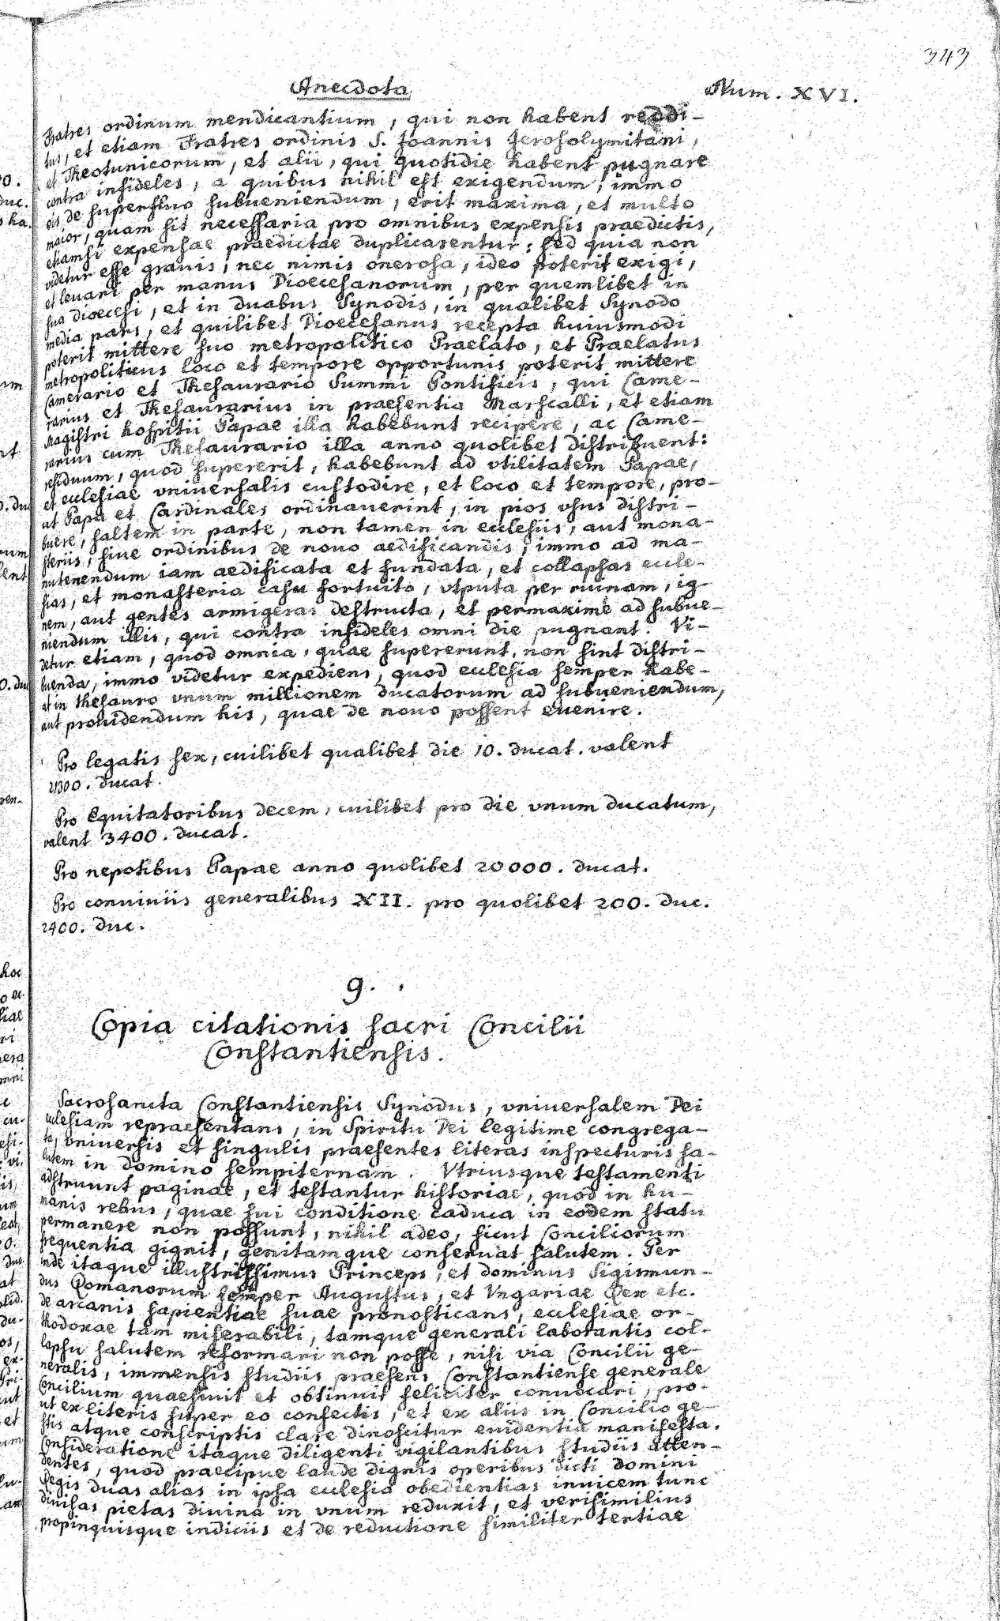 343
Anecdota Num. XVI.
Fratres ordinum mendicantium, qui non habent reddi-
tus, et etiam Fratres ordinis S. Joannis Jerosolymitani,
et Theotunicorum, et alii, qui quotidie habent pugnare
contra infideles, a quibus nihil est exigendum, immo
eis de superfluo subueniendum, erit maxima, et multo
maior, quam sit necessaria pro omnibus expensis praedictis,
etiamsi expensae praedictae duplicarentur: sed quia non
videtur esse grauis, nec nimis onerosa, ideo poterit exigi,
et leuari per manus Dioecesanorum, per quemlibet in
sua dioecesi, et in duabus Synodis, in qualibet Synodo
media pars, et quilibet Dioecesanus recepta huiusmodi
poterit mittere suo metropolitico Praelato, et Praelatus
metropoliticus loco et tempore opportunis poterit mittere
Camerario et Thesaurario Summi Pontificis, qui Came-
rarius et Thesaurarius in praesentia Marscalli, et etiam
Magistri hospitii Papae illa habebunt recipere, ac Came-
rarius cum Thesaurario illa anno quolibet distribuent:
residuum, quod supererit, habebunt ad vtilitatem Papae,
et ecclesiae vniuersalis custodire, et loco et tempore, pro-
ut Papa et Cardinales ordinauerint, in pios vsus distri-
buere, saltem in parte, non tamen in ecclesiis, aut mona-
steriis, siue ordinibus de nouo aedificandis, immo ad ma-
nutenendum iam aedificata et fundata, et collapsas eccle-
sias, et monasteria casu fortuito, vtputa per ruinam, ig-
nem, aut gentes armigeras destructa, et permaxime ad subue-
niendum illis, qui contra infideles omni die pugnant. Vi-
detur etiam, quod omnia, quae supererunt, non sint distri-
buenda, immo videtur expediens, quod ecclesia semper habe-
at in thesauro vnum millionem ducatorum ad subueniendum,
aut prouidendum his, quae de nouo possent euenire.
Pro legatis sex, cuilibet qualibet die 10. ducat. valent
21300. ducat.
Pro Equitatoribus decem, cuilibet pro die vnum ducatum,
valent 3400. ducat.
Pro nepotibus Papae anno quolibet 20000. ducat.
Pro conuiuiis generalibus XII. pro quolibet 200. duc.
2400. duc.
9.
Copia citationis sacri Concilii
Constantiensis.
Sacrosancta Constantiensis Synodus, vniuersalem Dei
ecclesiam repraesentans, in Spiritu Dei legitime congrega-
ta, vniuersis et singulis praesentes literas inspecturis sa-
lutem in domino sempiternam. Vtriusque testamenti
adstruunt paginae, et testantur historiae, quod in hu-
manis rebus, quae sui conditione caduca in eodem statu
permanere non possunt, nihil adeo, sicut Conciliorum
frequentia gignit, genitamque conseruat salutem. Per
inde itaque illustrissimus Princeps, et dominus Sigismun-
dus Romanorum semper Augustus, et Vngariae Rex etc.
de arcanis sapientiae suae pronosticans, ecclesiae or-
thodoxae tam miserabili, tamque generali laborantis col-
lapsu salutem reformari non posse, nisi via Concilii ge-
neralis, immensis studiis praesens Constantiense generale
Concilium quaesiuit et obtinuit feliciter conuocari, pro-
ut ex literis super eo confectis, et ex aliis in Concilio ge-
stis atque conscriptis clare dinoscitur euidentia manifesta.
Consideratione itaque diligenti vigilantibus studiis atten-
dentes, quod praecipue laude dignis operibus dicti domini
Regis duas alias in ipsa ecclesia obedientias inuicem tunc
diuisas pietas diuina in vnum reduxit, et verisimilius
propinquisque indiciis et de reductione similiter tertiae